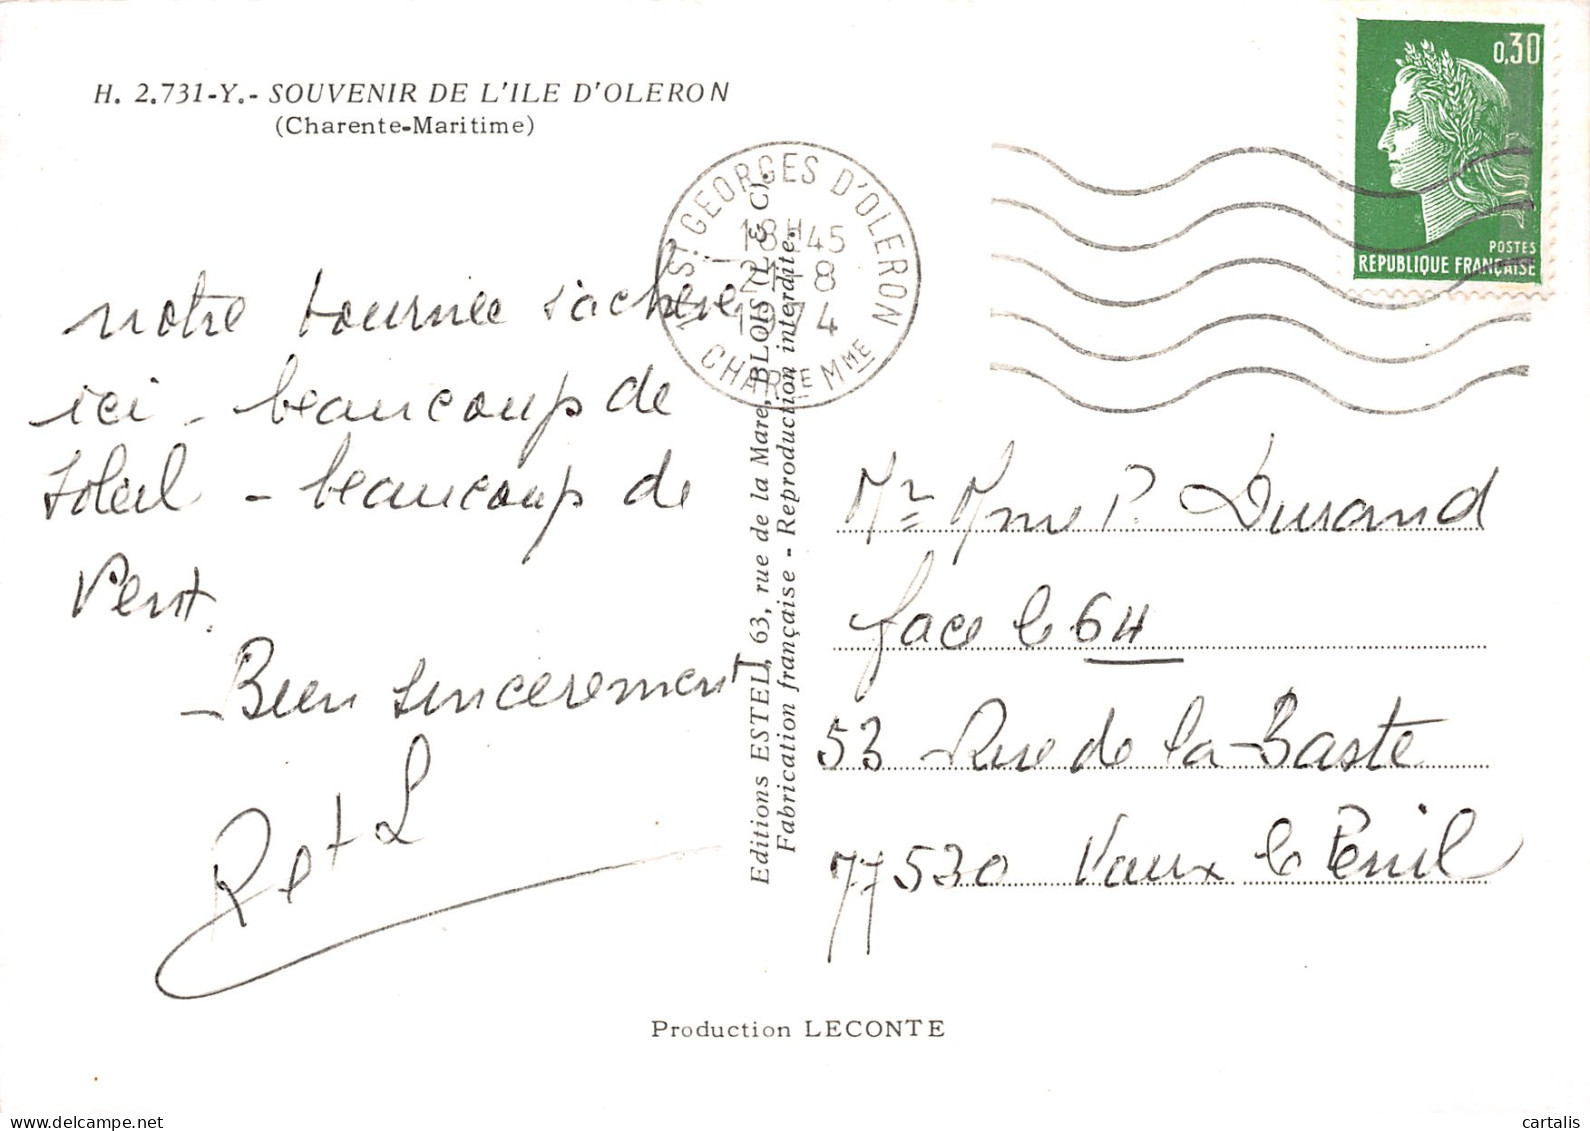 H. 2.731-Y.- SOUVENIR DE L'ILE D'OLERON
(Charente-Maritime)
0,30
POSTES
REPUBLIQUE FRANÇAISE
17 ST GEORGES D'OLERON
18H45
8
1974
CHARTE MME
notre tournée s'achève
ici - beaucoup de
soleil - beaucoup de
Vent.
- Bien sincerement
R et L
Editions ESTEL, 63, rue de la Mare, BLOIS (L. & C).
Fabrication française - Reproduction interdite.
Mr Mme P. Durand
face le 64
53 Rue de la Baste
77530 Vaux le Penil
Production LECONTE
cartalis